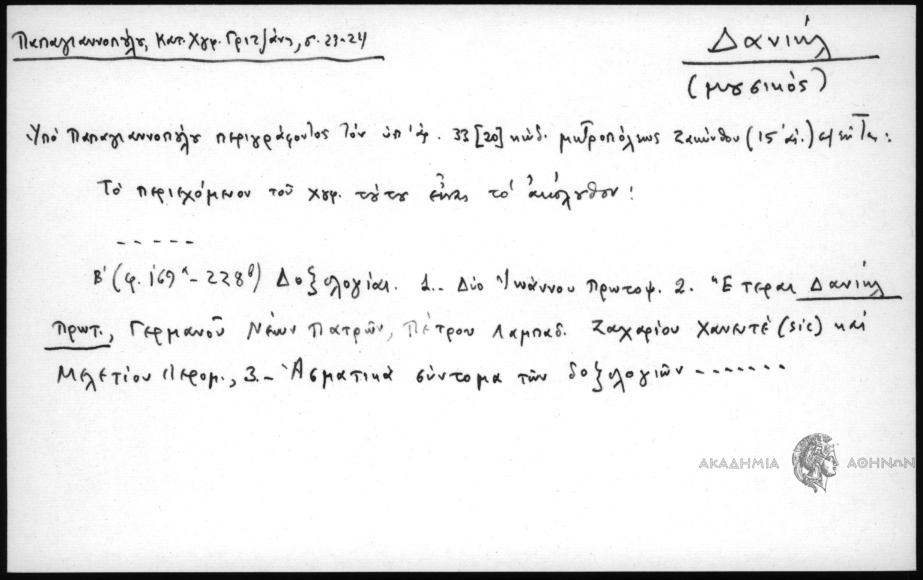 Παπαγιαννοπούλου, Κατ. Χγρ. Γριτσάνη, σ. 23-24
Δανιήλ
(μουσικός)
Ὑπό Παπαγιαννοπούλου περιγράφοντος τόν ὑπ' ἀρ. 33 [20] κώδ. μητροπόλεως Ζακύνθου (15 αἰ.)
Τό περιεχόμενον τοῦ χγφ. τούτου εἶναι τό ἀκόλουθον:
-----
Β' (φ. 169α - 228β) Δοξολογίαι. 1.- Δύο Ἰωάννου Πρωτοψ. 2. Ἕτεραι Δανιήλ
Πρωτ., Γερμανοῦ Νέων Πατρῶν, Πέτρου Λαμπαδ. Ζαχαρίου Χανεντέ (sic) καί
Μελετίου Ἱερομ., 3.- Ἀσματικά σύντομα τῶν δοξολογιῶν -------
ΑΚΑΔΗΜΙΑ ΑΘΗΝΩΝ